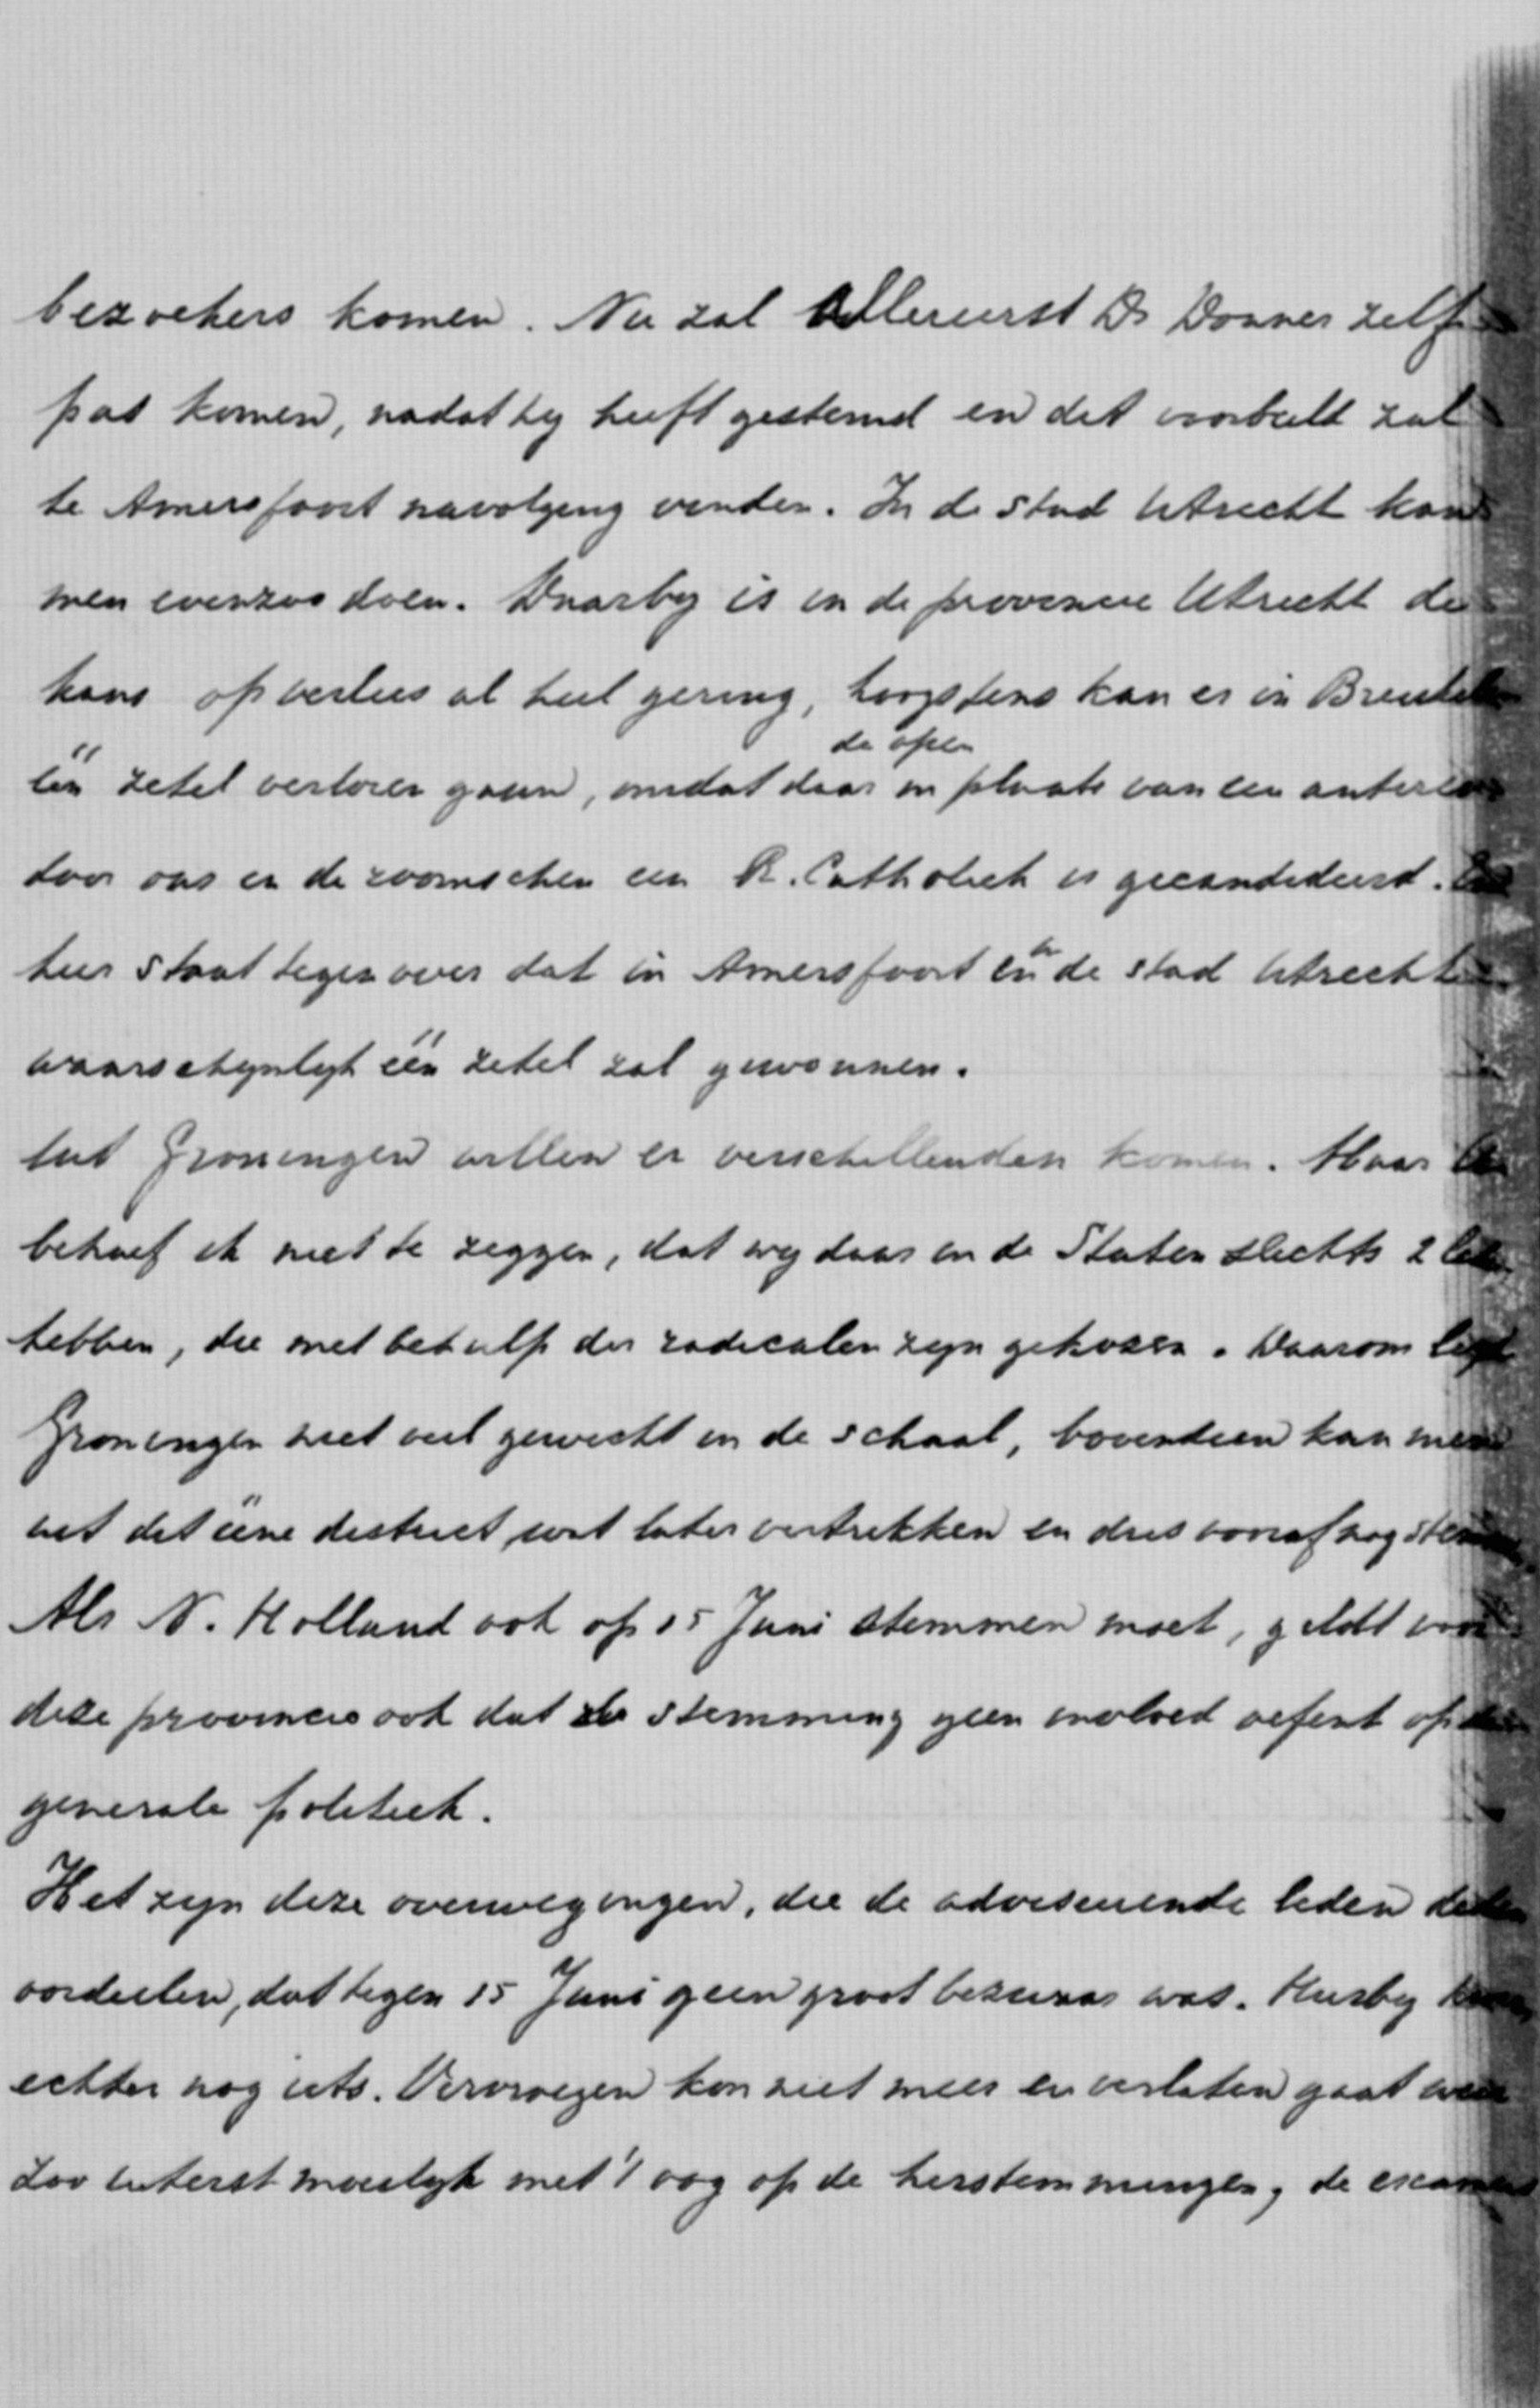 bezoekers komen. Nu zal Allereerst Ds Donner zelf
pas komen, nadat hij heeft gestemd en dit voorbeeld zal
te Amersfoort navolging vinden. In de stad Utrecht kan
men evenzoo doen. Daarbij is in de provincie Utrecht de
kans op verlies al heel gering, hoogstens kan er in
de open
één zetel verloren gaan, omdat daar in plaats van een
door ons en de roomschen een R. Catholiek is gecandideerd.
hier staat tegenover dat in Amersfoort en in de stad Utrecht
waarschijnlijk één zetel zal gewonnen.
Uit Groningen willen er verschillenden komen. Maar
behoef ik niet te zeggen, dat wij daar in de Staten slechts 2
hebben, die met behulp der radicalen zijn gekozen. Daarom legt
Groningen niet veel gewicht in de schaal, bovendien kan men
uit dit ééne district wat later vertrekken en dus vooraf nog
Als N. Holland ook op 15 Juni stemmen moet, geldt voor
deze provincie ook dat de stemming geen invloed oefent op
generale politiek.
Het zijn deze overwegingen, die de adviseerende leden
oordeelen, dat tegen 15 Juni geen groot bezwaar was. Hierbij
echter nog iets. Vervroegen kon niet meer en verlaten gaat
zoo uiterst moeilijk met 't oog op de herstemmingen, de